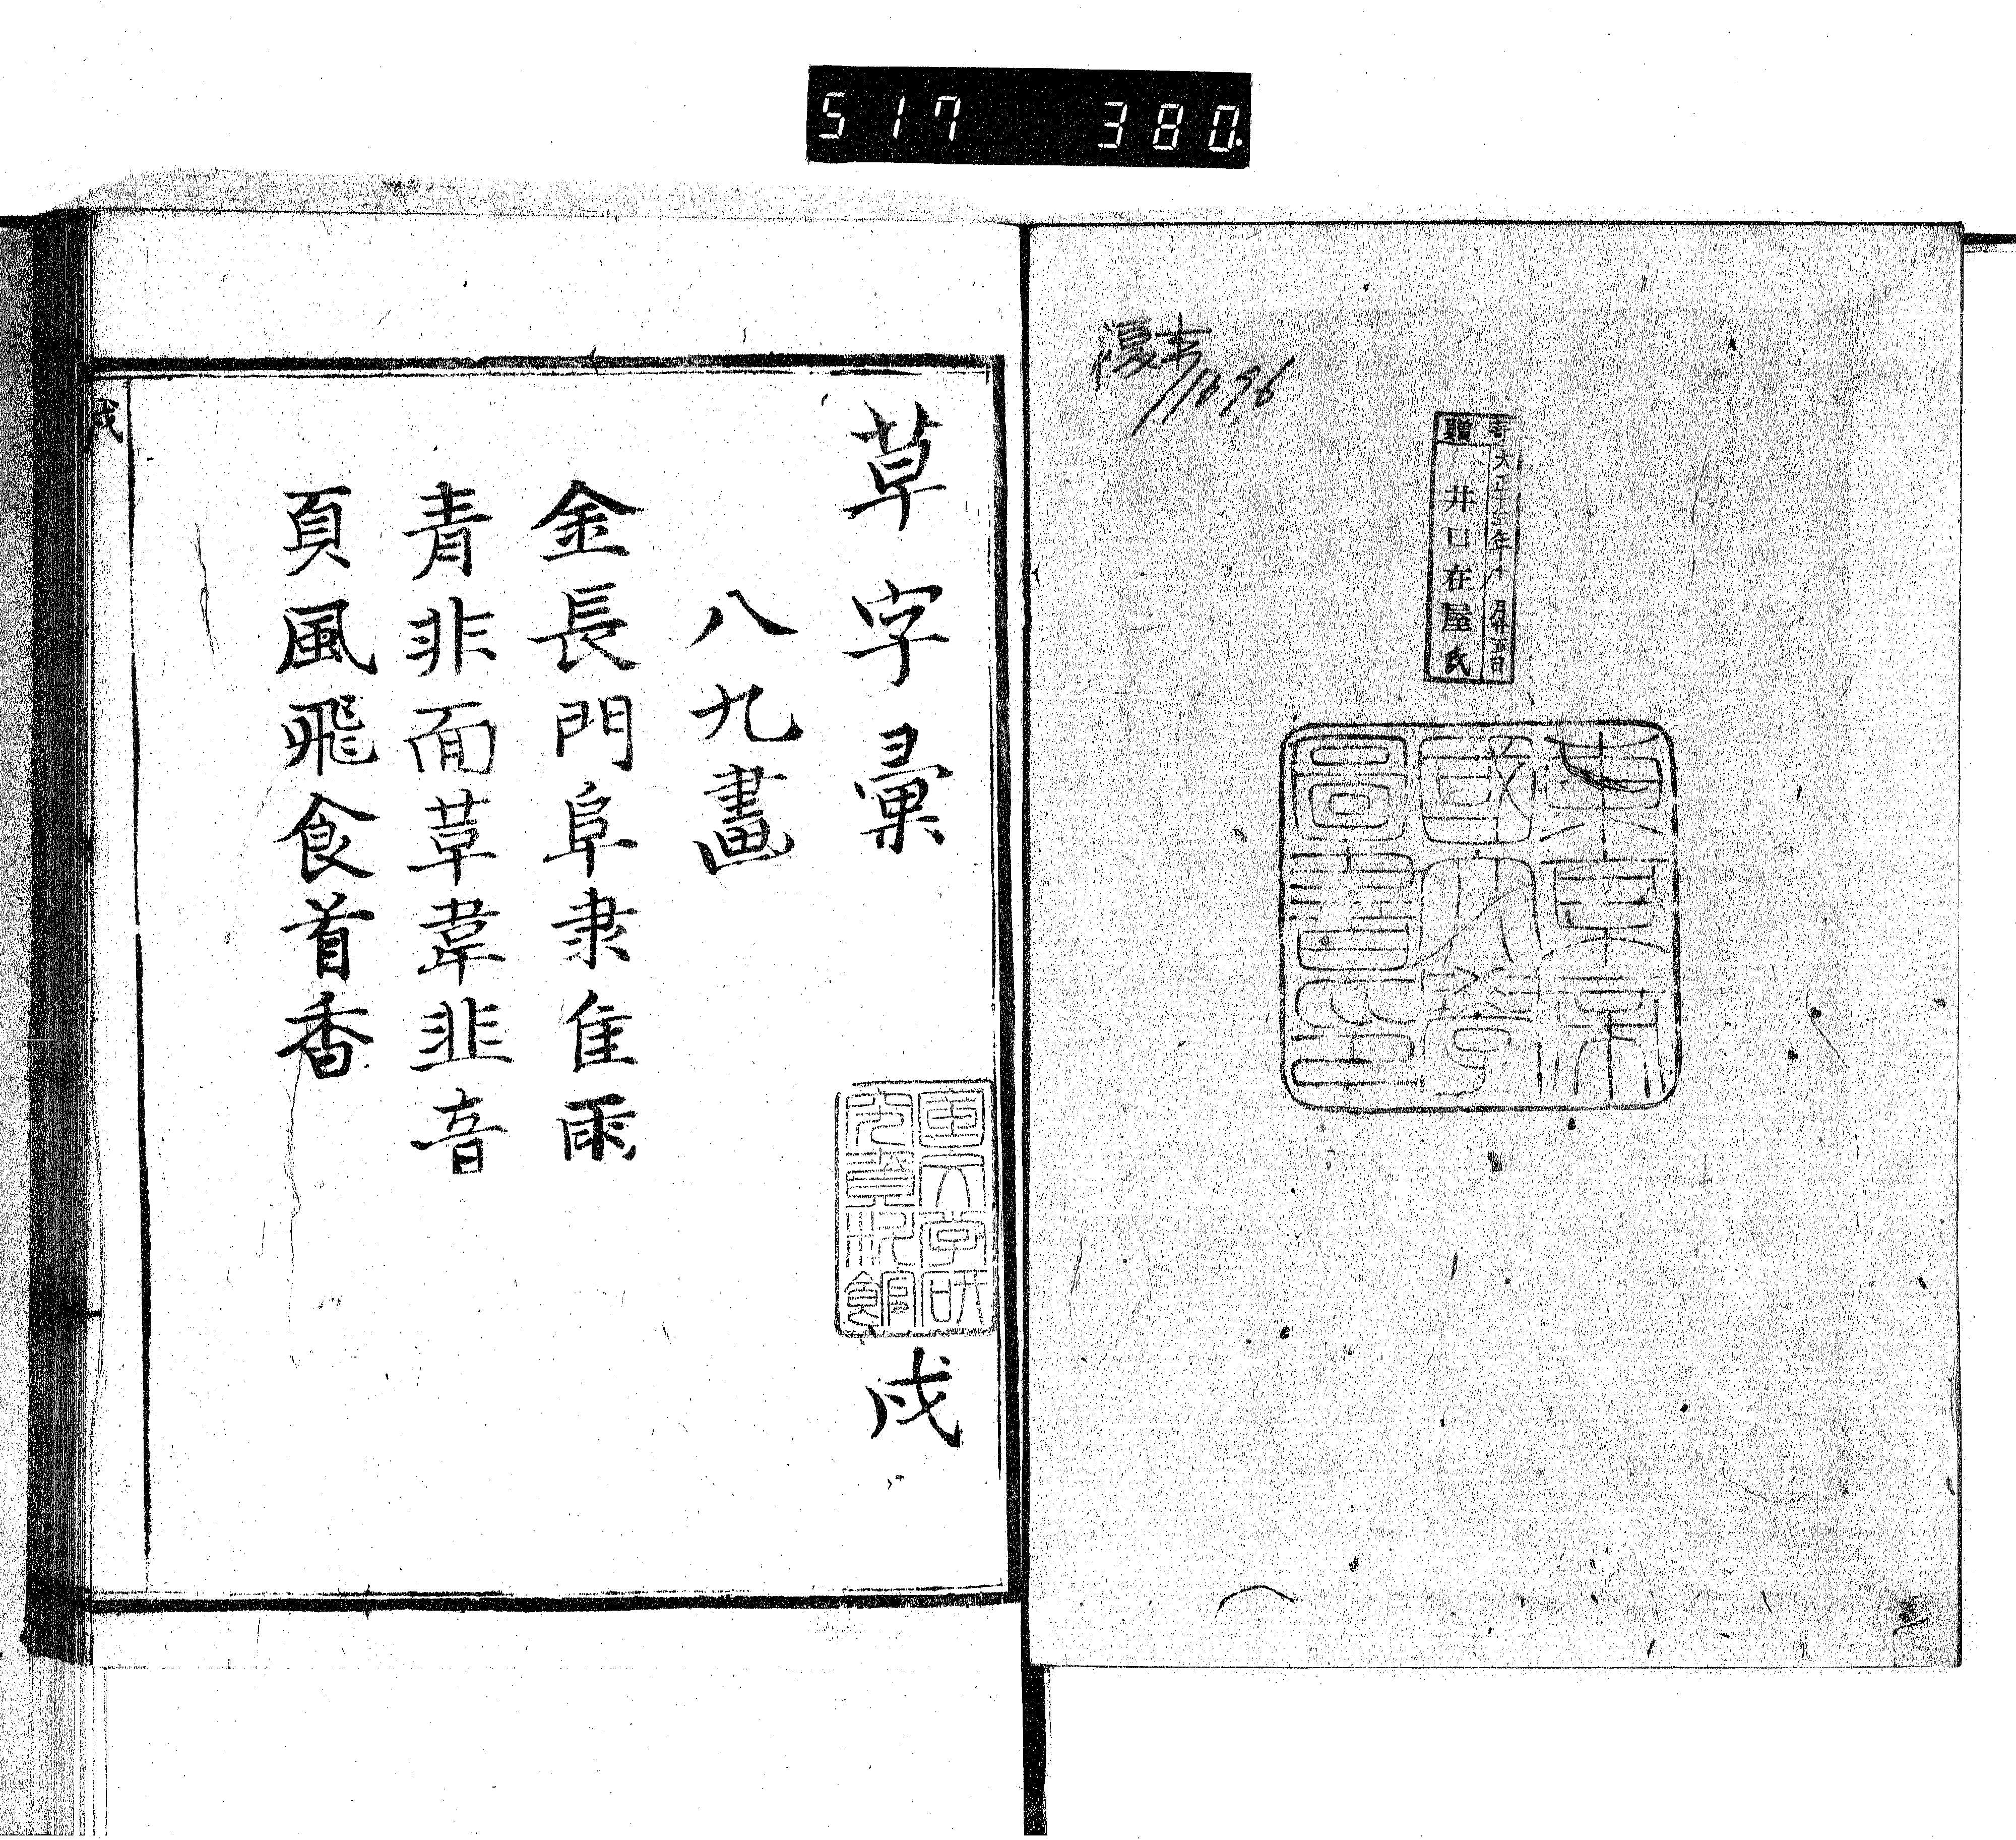 517 380.
寄贈
大正十三年十月廿五日
井口在屋氏
東京帝
國大學
圖書之印
草字彙 戌
八九畫
金長門阜隶隹雨
青非面革韋韭音
頁風飛食首香
戌